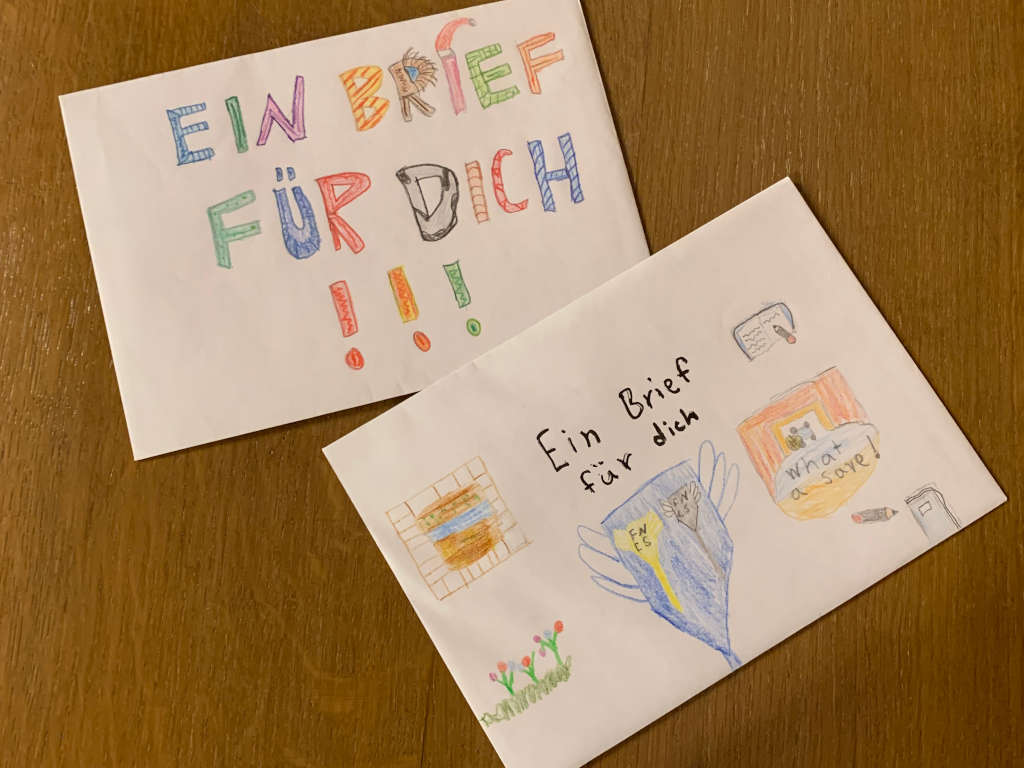 EIN BRIEF
FÜR DICH
!!!
Ein Brief
für dich
FN
CS
FN
CS
what
a save!